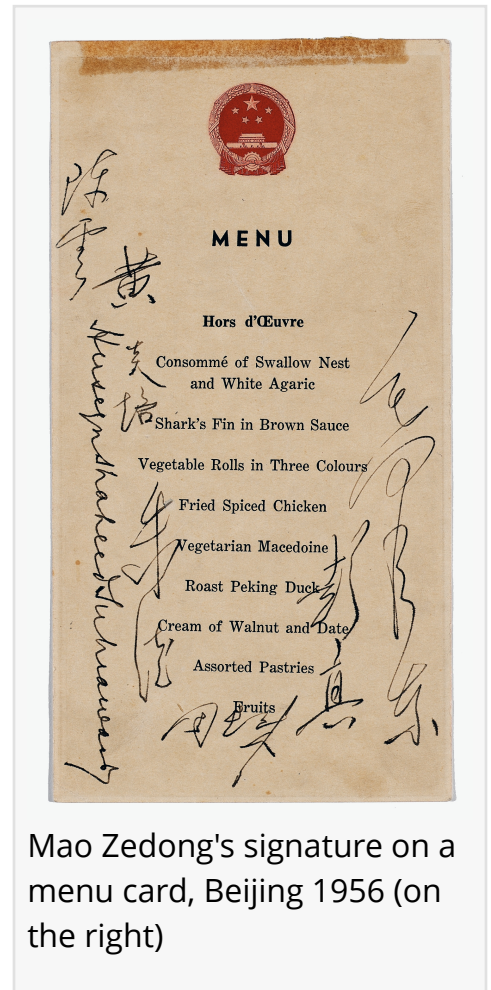 MENU
黄炎培
Huseyn Shaheed Suhrawardy
Hors d'Œuvre
Consommé of Swallow Nest
and White Agaric
Shark's Fin in Brown Sauce
Vegetable Rolls in Three Colours
Fried Spiced Chicken
Vegetarian Macedoine
Roast Peking Duck
Cream of Walnut and Date
Assorted Pastries
Fruits
朱德
彭真
毛泽东
Mao Zedong's signature on a
menu card, Beijing 1956 (on
the right)